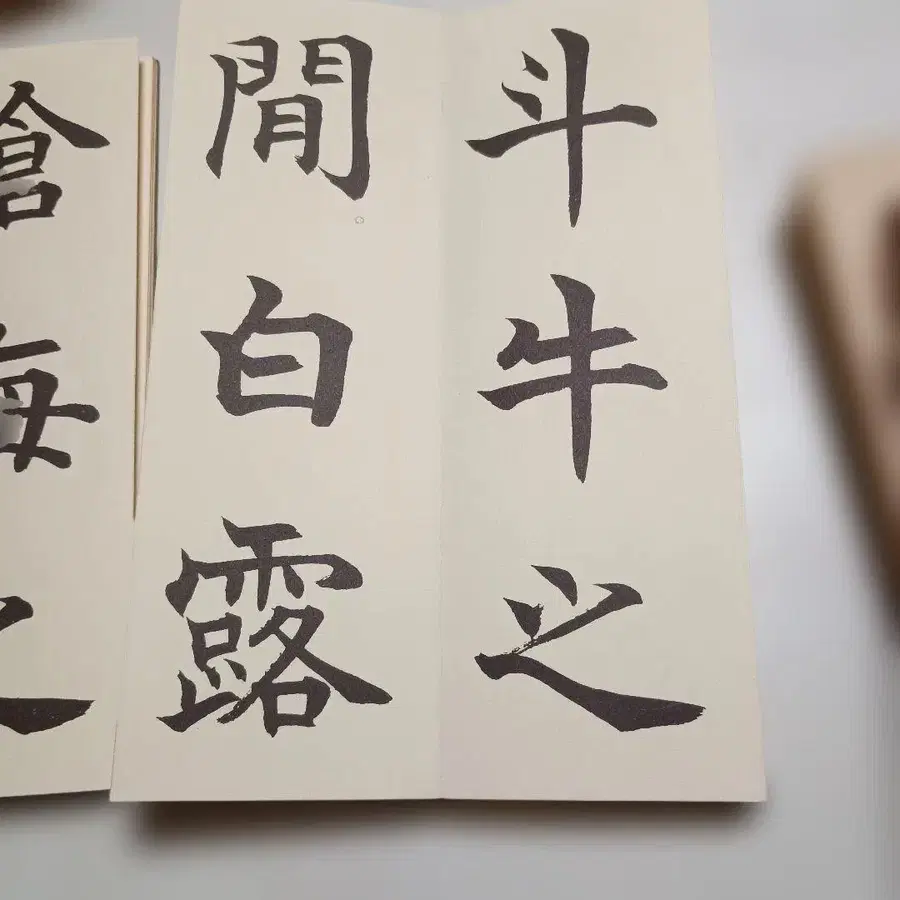 斗牛之
閒白露